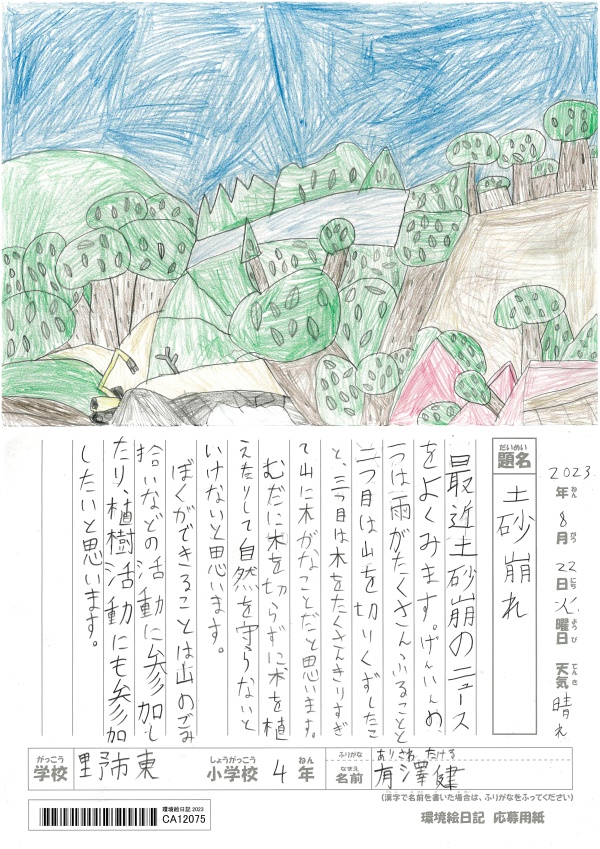 だいめい
題名
土砂崩れ
2023年 8月 22日 火曜日 天気 晴れ
ねん がつ にち ようび てんき
最近土砂崩のニュース
をよくみます。げんいんの、
一つは雨がたくさんふることと
二つ目は山を切りくずしたこ
と、三つ目は木をたくさんきりすぎ
て山に木がなことだと思います。
むだに木を切らずに木を植
えたりして自然を守らないと
いけないと思います。
ぼくができることは山のごみ
拾いなどの活動に参加し
たり、植樹活動にも参加
したいと思います。
がっこう しょうがっこう ねん ふりがな ありさわ たける
学校 野市東 小学校 4年 なまえ 名前 有澤健
(漢字で名前を書いた場合は、ふりがなをふってください)
環境絵日記 2023
CA12075
環境絵日記 応募用紙